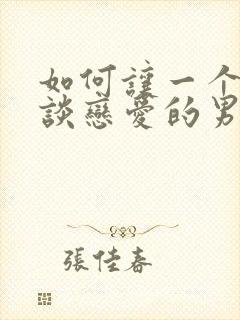 如何讓一个
談戀愛的男
張佳春